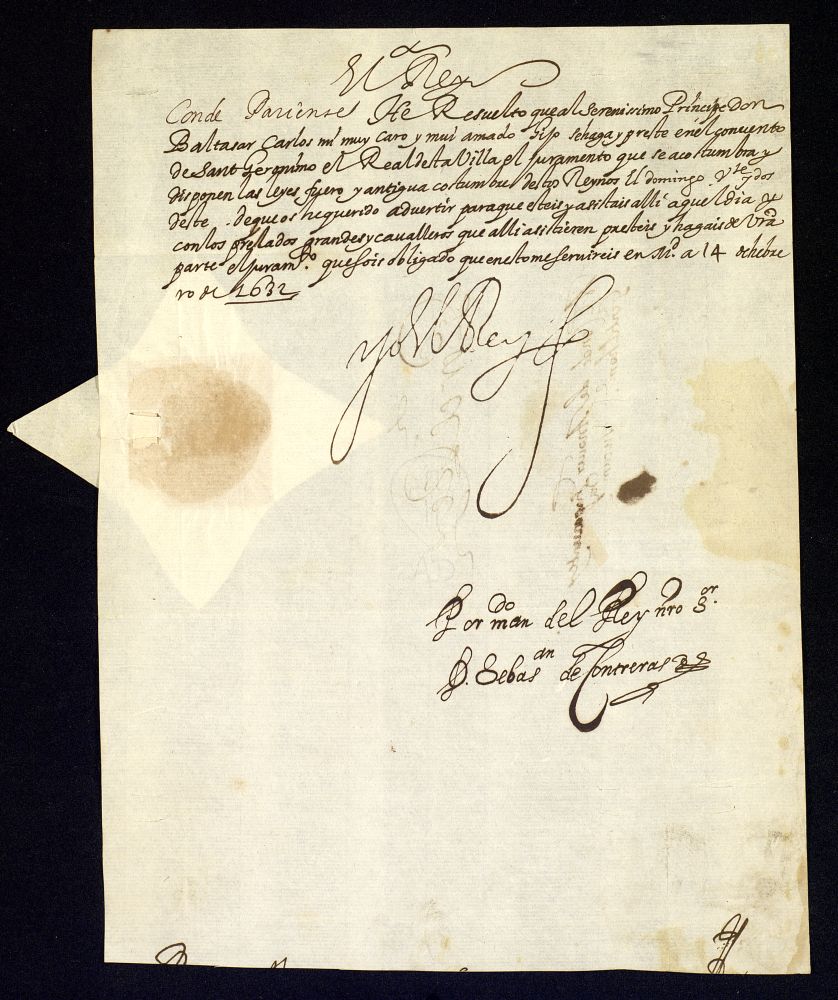 El Rey
Conde Pariente. He Resuelto que al Serenissimo Principe Don
Baltasar Carlos mi muy caro y mui amado hijo se haga y preste en el convento
de Sant Geronimo el Real desta Villa el Juramento que se acostumbra y
disponen las leyes fuero y antigua costumbre destos Reynos El domingo Vte y dos
deste. de que os he querido advertir para que esteis y asistais alli aquel dia y
con los prelados grandes y cavalleros que alli asistieren presteis y hagais de Vra
parte el Juramto. que sois obligado que en esto me servireis en Md. a 14 de hebre
ro de 1632
Yo El Rey
Por mando del Rey nro Sor.
D. Sebasan de Contreras